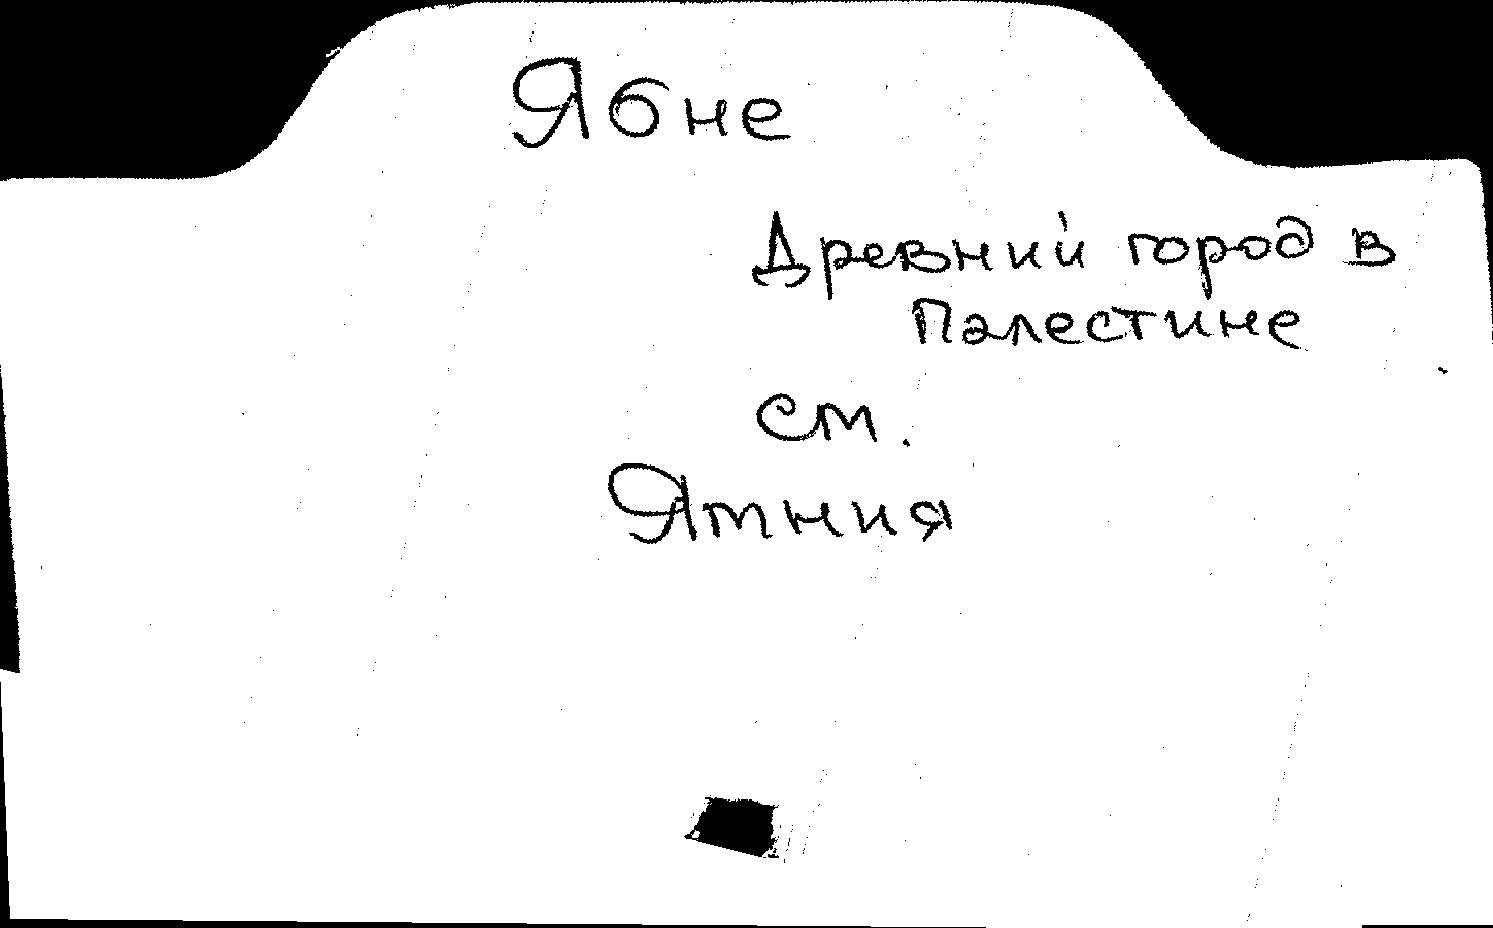 Ябне
Древний город в
Палестине
см.
Ямния